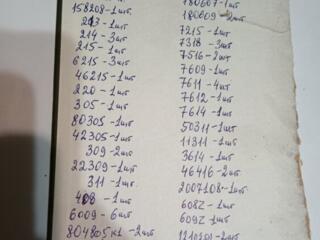 158208-1шт
213-1шт
214-3шт
215-1шт
6215-3шт
46215-1шт
220-1шт
305-1шт
80305-1шт
42305-1шт
309-2шт
22309-1шт
311-1шт
408-1шт
6009-6шт
804805К1-2шт
180607-1шт
180609-2шт
7215-1шт
7318-3шт
7516-2шт
7609-1шт
7611-4шт
7612-1шт
7614-1шт
50311-1шт
11311-1шт
3614-1шт
46416-2шт
2007108-1шт
608Z-1шт
609Z-1шт